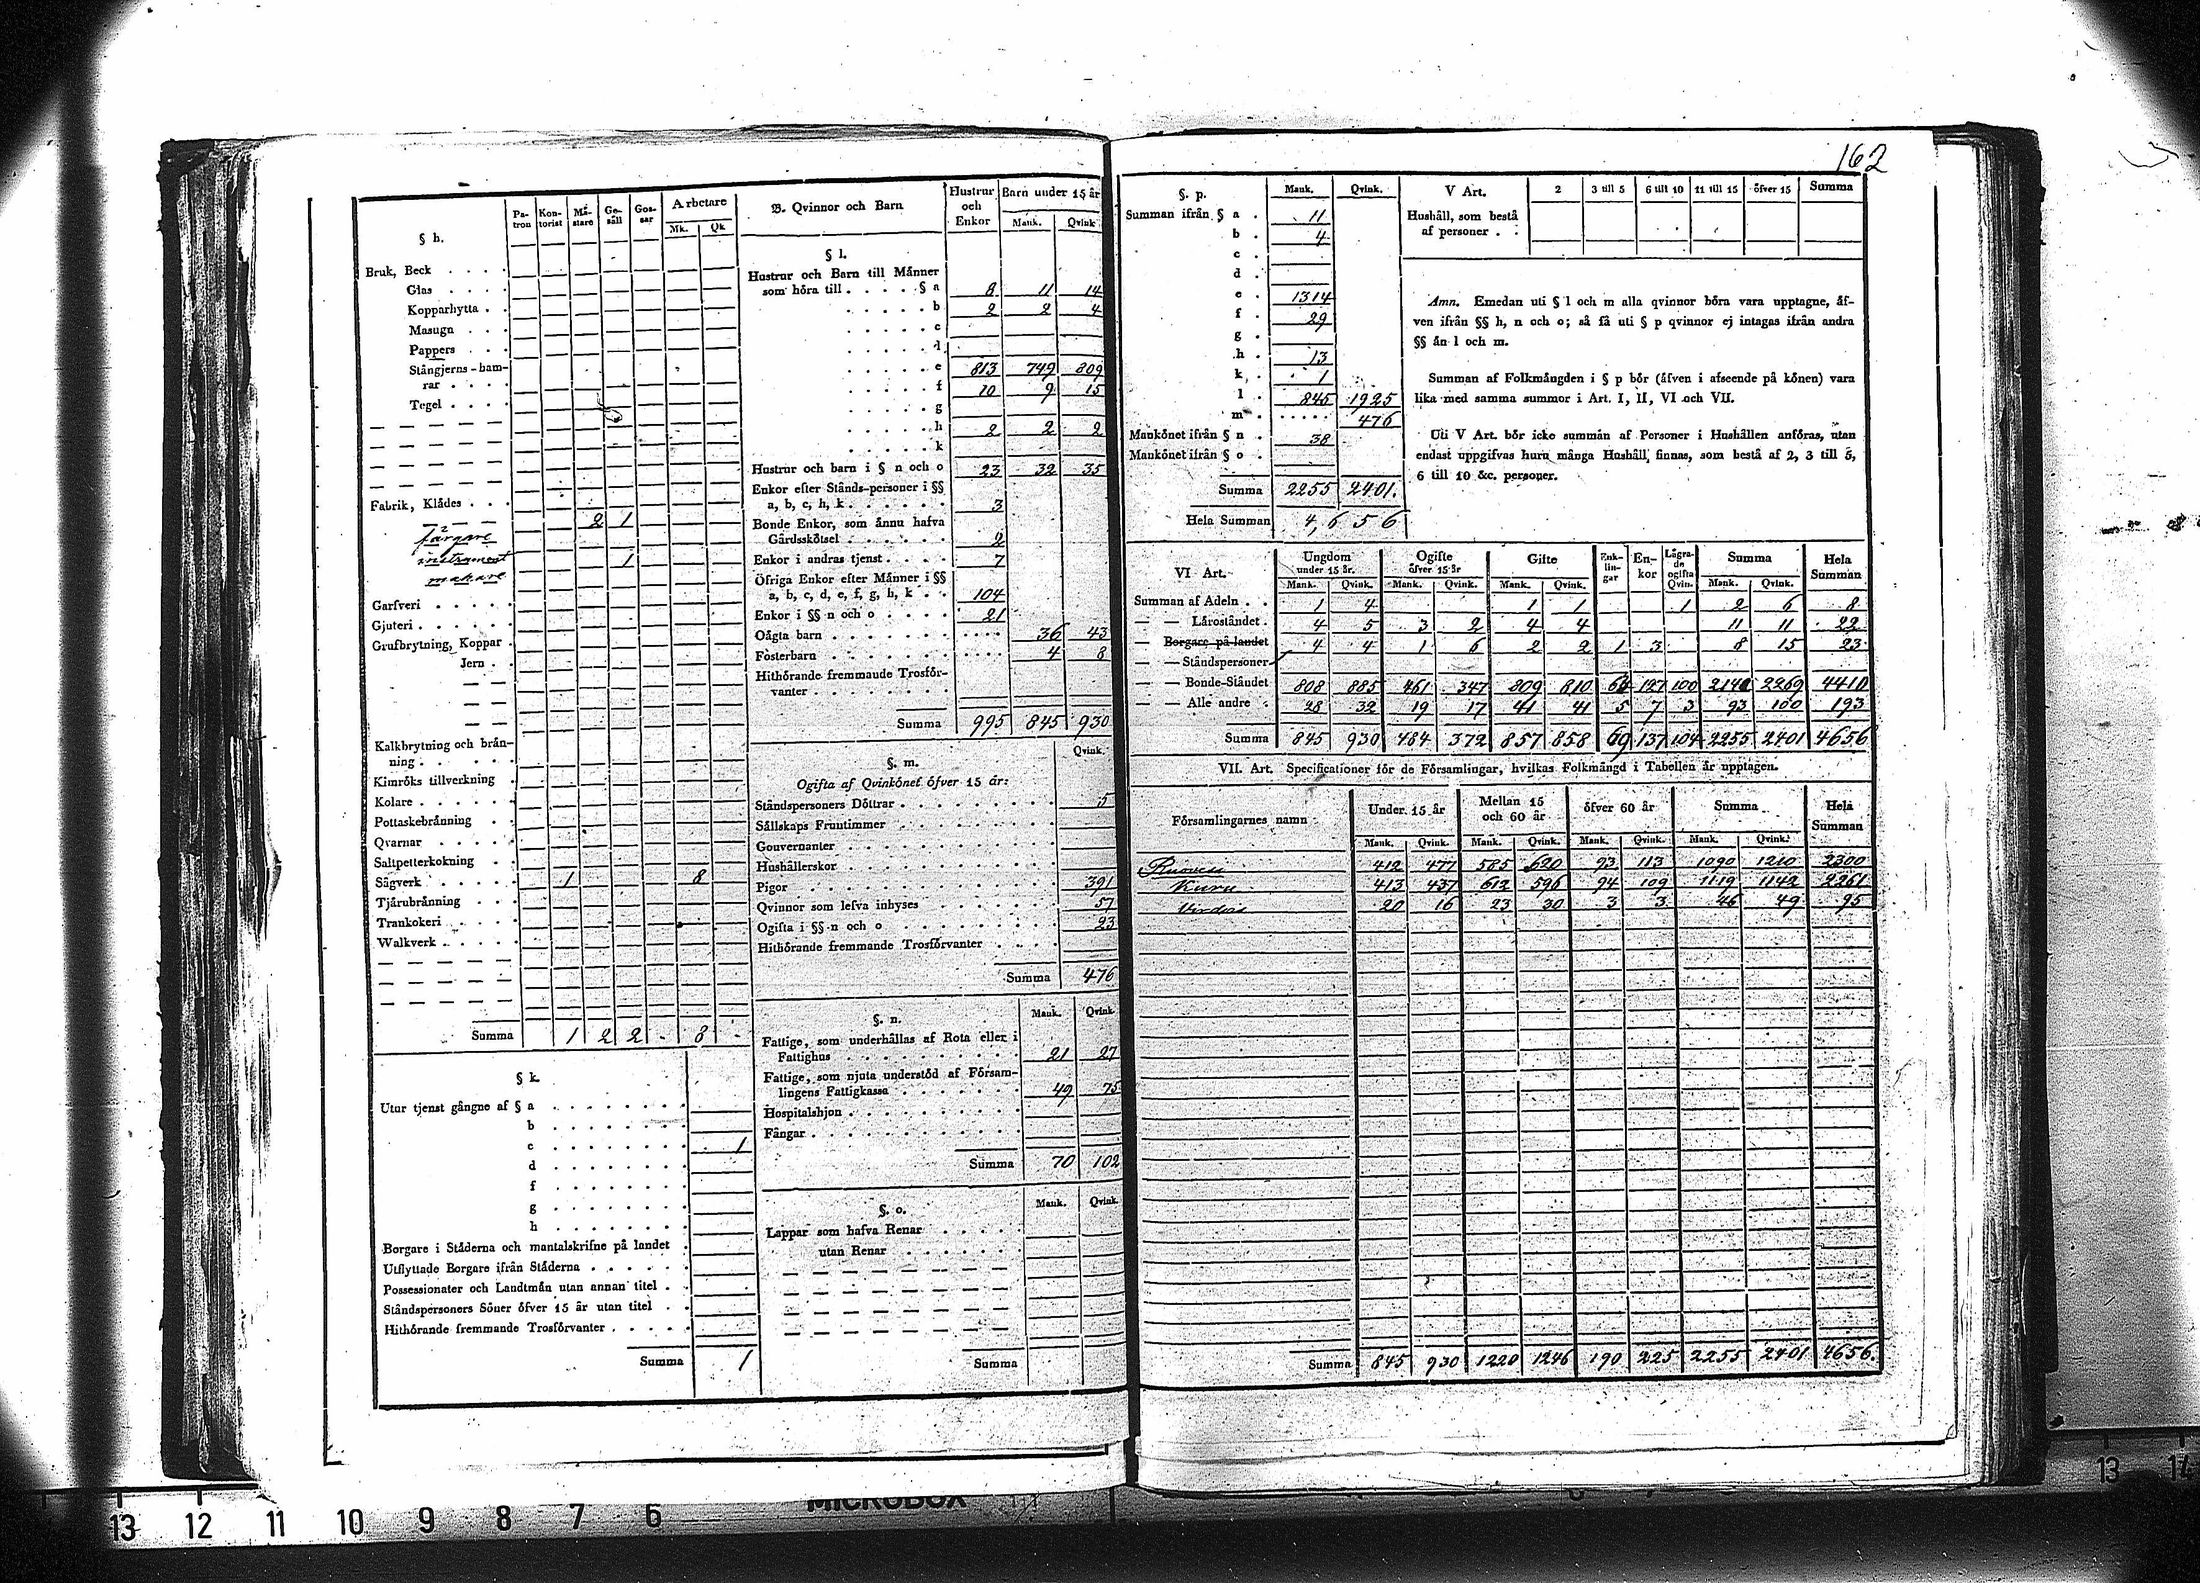 162
§ h.
Pa-tron Kon-torist Mä-stare Ge-säll Gos-sar Arbetare
Mk. Qk
Bruk, Beck . . . .
Glas . . . .
Kopparhytta . .
Masugn . . .
Pappers . . .
Stångjerns-ham-
rar . . . .
Tegel . . . .
Fabrik, Klådes . . .
2 1
färgare
instrument 1
makare
Garfveri . . . . .
Gjuteri . . . . .
Grufbrytning, Koppar .
Jern . .
Kalkbrytning och brån-
ning . . . . .
Kimröks tillverkning .
Kolare . . . . .
Pottaskebrånning . .
Qvarnar . . . . .
Saltpetterkokning . .
Sågverk . . . . . 1 8
Tjårubrånning . . .
Trankokeri . . . .
Walkverk . . . . .
Summa 1 2 2 . 8 .
§ k.
Utur tjenst gångne af § a . . . . . . .
b . . . . . . .
c . . . . . . . 1
d . . . . . . .
f . . . . . . .
g . . . . . . .
h . . . . . . .
Borgare i Städerna och mantalskrifne på landet .
Utflyttade Borgare ifrån Städerna . . . . .
Possessionater och Landtmån utan annan titel . .
Ståndspersoners Söner öfver 15 år utan titel . .
Hithörande fremmande Trosförvanter . . . . .
Summa 1
B. Qvinnor och Barn
Hustrur och Enkor Barn under 15 år
Mank. Qvink.
§ l.
Hustrur och Barn till Männer
som höra till . . . . . § a 8 11 14
. . . . . b 2 2 4
. . . . . c
. . . . . d
. . . . . e 813 749 809
. . . . . f 10 9 15
. . . . . g
. . . . . h 2 2 2
. . . . . k
Hustrur och barn i § n och o 23 32 35
Enkor efter Stånds-personer i §§
a, b, c, h, k . . . . . . 3
Bonde Enkor, som ännu hafva
Gårdsskötsel . . . . . . 2
Enkor i andras tjenst . . . . . 7
Öfriga Enkor efter Männer i §§
a, b, c, d, e, f, g, h, k . . 104
Enkor i §§ n och o . . . . . 21
Oägta barn . . . . . . . . 36 43
Fosterbarn . . . . . . . . 4 8
Hithörande fremmande Trosför-
vanter . . . . . . . .
Summa 995 845 930
§. m.
Qvink.
Ogifta af Qvinkönet öfver 15 år:
Ståndspersoners Döttrar . . . . . . . . . 5
Sällskaps Fruntimmer . . . . . . . . .
Gouvernanter . . . . . . . . . . .
Hushållerskor . . . . . . . . . . .
Pigor . . . . . . . . . . . . . 391
Qvinnor som lefva inhyses . . . . . . . 57
Ogifta i §§ n och o . . . . . . . . . 23
Hithörande fremmande Trosförvanter . . . .
Summa 476
§. n.
Mank. Qvink.
Fattige, som underhållas af Rota eller i
Fattighus . . . . . . . . . . 21 27
Fattige, som njuta understöd af Försam-
lingens Fattigkassa . . . . . . . 49 75
Hospitalshjon . . . . . . . . . .
Fångar . . . . . . . . . . . .
Summa 70 102
§. o.
Mank. Qvink.
Lappar som hafva Renar . . . . .
utan Renar . . . . . .
Summa
§. p.
Mank. Qvink.
Summan ifrån § a . 11
b . 4
c .
d .
e . 1314
f . 29
g .
h . 13
k . 1
l . 845 1925
m . . . . . . 476
Mankönet ifrån § n . 38
Mankönet ifrån § o .
Summa 2255 2401.
Hela Summan 4,656
V Art. 2 3 till 5 6 till 10 11 till 15 öfver 15 Summa
Hushåll, som bestå
af personer . .
Anm. Emedan uti § l och m alla qvinnor böra vara upptagne, äf-
ven ifrån §§ h, n och o; så få uti § p qvinnor ej intagas ifrån andra
§§ än l och m.
Summan af Folkmängden i § p bör (äfven i afseende på könen) vara
lika med samma summor i Art. I, II, VI och VII.
Uti V Art. bör icke summan af Personer i Hushållen anföras, utan
endast uppgifvas huru många Hushåll finnas, som bestå af 2, 3 till 5,
6 till 10 &c. personer.
VI Art. Ungdom under 15 år. Ogifte öfver 15 år Gifte Enk-lin-gar En-kor Lägra-de ogifta Qvin. Summa Hela Summan
Mank. Qvink. Mank. Qvink. Mank. Qvink. Mank. Qvink.
Summan af Adeln . . 1 4 1 1 1 2 6 8
— — Läroståndet . 4 5 3 2 4 4 11 11 22
— — Borgare på landet 4 4 1 6 2 2 1 3 8 15 23
— — Ståndspersoner
— — Bonde-Ståndet 808 885 461 347 809 810 63 127 100 2141 2269 4410
— — Alle andre . 28 32 19 17 41 41 5 7 3 93 100 193
Summa 845 930 484 372 857 858 69 137 104 2255 2401 4656
VII. Art. Specificationer för de Församlingar, hvilkas Folkmängd i Tabellen är upptagen.
Församlingarnes namn Under 15 år Mellan 15 och 60 år öfver 60 år Summa Hela Summan
Mank. Qvink. Mank. Qvink. Mank. Qvink. Mank. Qvink.
Ruovesi 412 477 585 620 93 113 1090 1210 2300
Kuru 413 437 612 596 94 109 1119 1142 2261
Virdois 20 16 23 30 3 3 46 49 95
Summa 845 930 1220 1246 190 225 2255 2401 4656.
13 12 11 10 9 8 7 6
MICROBOX
13 14